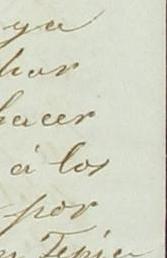 ya
hacer
á los
por
Tepic